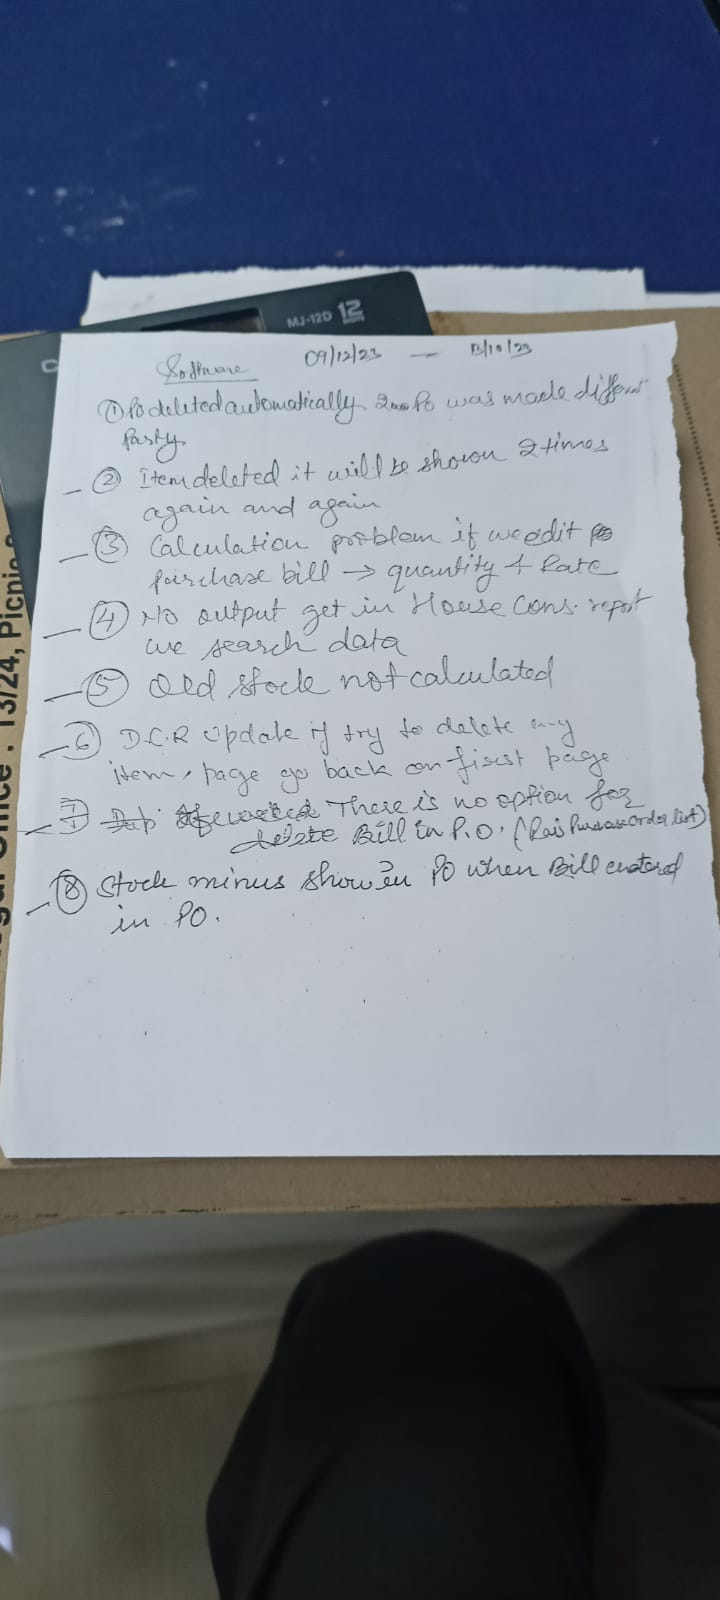 MJ-12D 12
Software 09/12/23 — 13/10/23
① Po deleted automatically 2 Po was made different
Party
② Item deleted it will be shown 2 times
again and again
③ Calculation problem if we edit
purchase bill → quantity & Rate
④ No output get in House Cons. report
we search data
⑤ Old stock not calculated
⑥ D.C.R Update if try to delete any
item, page go back on first page
⑦ There is no option for
delete Bill in P.O. (Rais Purchase Order list)
⑧ Stock minus show in PO when Bill enatered
in PO.
13/24, Picnic